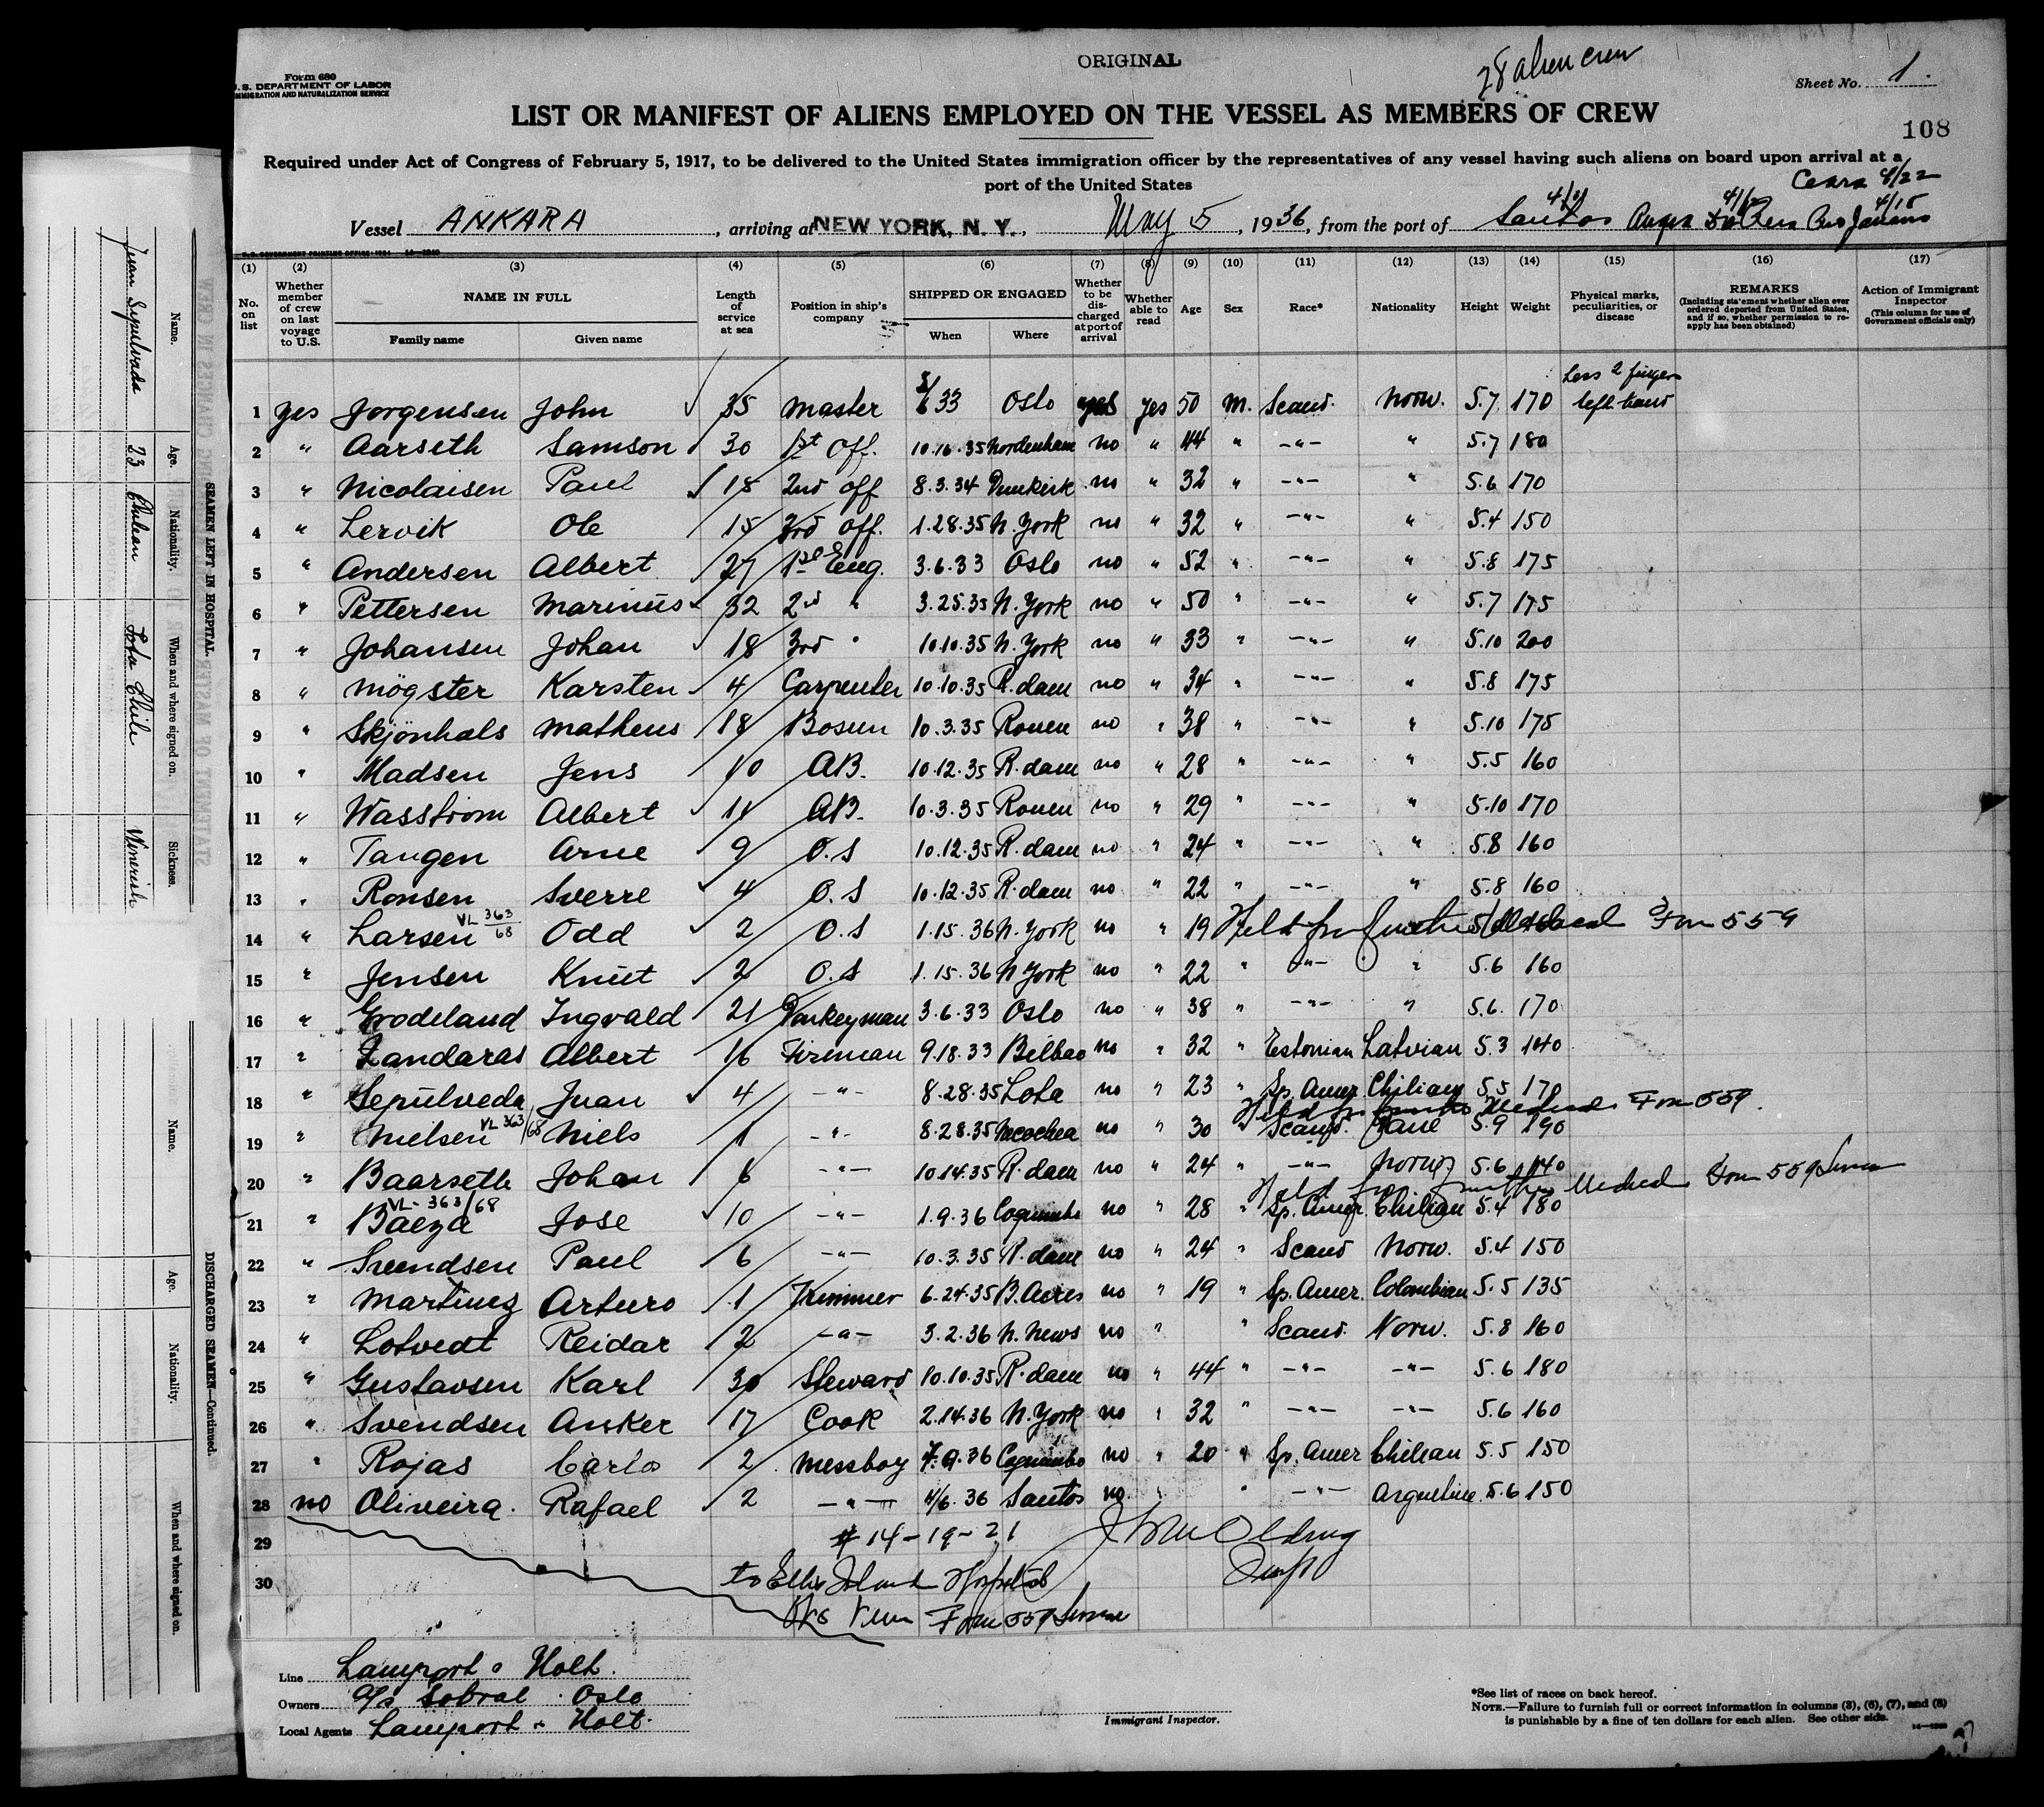 Form 680
U.S. DEPARTMENT OF LABOR
IMMIGRATION AND NATURALIZATION SERVICE
ORIGINAL
28 alien crew
Sheet No. 1.
LIST OR MANIFEST OF ALIENS EMPLOYED ON THE VESSEL AS MEMBERS OF CREW
108
Required under Act of Congress of February 5, 1917, to be delivered to the United States immigration officer by the representatives of any vessel having such aliens on board upon arrival at a
port of the United States
Ceara 4/22
Vessel ANKARA, arriving at NEW YORK, N. Y., May 5, 1936, from the port of Santos Angra Rio Janeiro 4/18
(1) (2) (3) (4) (5) (6) (7) (8) (9) (10) (11) (12) (13) (14) (15) (16) (17)
No. on list
Whether member of crew on last voyage to U.S.
NAME IN FULL
Family name Given name
Length of service at sea
Position in ship's company
SHIPPED OR ENGAGED
When Where
Whether to be discharged at port of arrival
Whether able to read
Age
Sex
Race*
Nationality
Height
Weight
Physical marks, peculiarities, or disease
REMARKS
(Including statement whether alien ever ordered deported from United States, and if so, whether permission to reapply has been obtained)
Action of Immigrant Inspector
(This column for use of Government officials only)
Less 2 fingers
1 yes Jorgensen John 35 Master 33 Oslo yes yes 50 M. Scand. Norw. 5.7 170 left hand
2 " Aarseth Samson 30 1st Off. 10.16.35 Nordenham no " 44 " -"- " 5.7 180
3 " Nicolaisen Paul 18 2nd Off 8.3.34 Dunkirk no " 32 " -"- " 5.6 170
4 " Lervik Ole 15 3rd Off. 1.28.35 N. York no " 32 " -"- " 5.4 150
5 " Andersen Albert 27 1st Eng. 3.6.33 Oslo no " 52 " -"- " 5.8 175
6 " Pettersen Marinus 32 2nd " 3.25.35 N. York no " 50 " -"- " 5.7 175
7 " Johansen Johan 18 3rd " 10.10.35 N. York no " 33 " -"- " 5.10 200
8 " Mögster Karsten 4 Carpenter 10.10.35 R.dam no " 34 " -"- " 5.8 175
9 " Skjönhals Matheus 18 Bosun 10.3.35 Rouen no " 38 " -"- " 5.10 175
10 " Madsen Jens 10 AB. 10.12.35 R.dam no " 28 " -"- " 5.5 160
11 " Wasstrom Albert 11 AB. 10.3.35 Rouen no " 29 " -"- " 5.10 170
12 " Tangen Arne 9 O.S 10.12.35 R.dam no " 24 " -"- " 5.8 160
13 " Ronsen Sverre 4 O.S 10.12.35 R.dam no " 22 " -"- " 5.8 160
VL 363/68
14 " Larsen Odd 2 O.S 1.15.36 N. York no " 19 Held for further Medical Form 559
15 " Jensen Knut 2 O.S 1.15.36 N York no " 22 " -"- " 5.6 160
16 " Grodeland Ingvald 21 Donkeyman 3.6.33 Oslo no " 38 " -"- " 5.6. 170
17 " Zandaras Albert 16 Fireman 9.18.33 Bilbao no " 32 " Estonian Latvian 5.3 140
18 " Sepulveda Juan 4 -"- 8.28.35 Lota no " 23 " Sp. Amer Chilian 5.5 170
VL 363/68 Held for further Medical Form 559.
19 " Nielsen Niels 1 -"- 8.28.35 Necochea no " 30 " Scand. Dane 5.9 190
20 " Baarseth Johan 6 -"- 10.14.35 R.dam no " 24 " -"- Norw 5.6 140
VL-363/68 Held for further Medical Form 559
21 " Baeza Jose 10 -"- 1.9.36 Coquimbo no " 28 " Sp. Amer. Chilian 5.4 180
22 " Svendsen Paul 6 -"- 10.3.35 R.dam no " 24 " Scand Norw. 5.4 150
23 " Martinez Arturo 1 Trimmer 6.24.35 B. Aires no " 19 " Sp. Amer. Colombian 5.5 135
24 " Lotvedt Reidar 2 -"- 3.2.36 N. News no " " Scand. Norw. 5.8 160
25 " Gustavsen Karl 30 Steward 10.10.35 R.dam no " 44 " -"- -"- 5.6 180
26 " Svendsen Anker 17 Cook 2.14.36 N. York no " 32 " -"- -"- 5.6 160
27 " Rojas Carlo 2 Messboy 9.36 Coquimbo no " 20 " Sp. Amer Chilean 5.5 150
28 no Oliveira. Rafael 2 -"- 4/6.36 Santos no. " " -"- Argentine. 5.6 150
29 # 14-19-21
30 to Ellis Island Hospital
Form 559
Line Lamport & Holt.
Owners A/s Sobral Oslo
Local Agents Lamport & Holt.
Immigrant Inspector.
*See list of races on back hereof.
NOTE.—Failure to furnish full or correct information in columns (3), (6), (7), and (8)
is punishable by a fine of ten dollars for each alien. See other side.
SEAMEN LEFT IN HOSPITAL.
Name. Age. Nationality. When and where signed on. Sickness.
Juan Sepulveda 23 Chilean Lota Chile
DISCHARGED SEAMEN—Continued.
Name. Age. Nationality. When and where signed on.